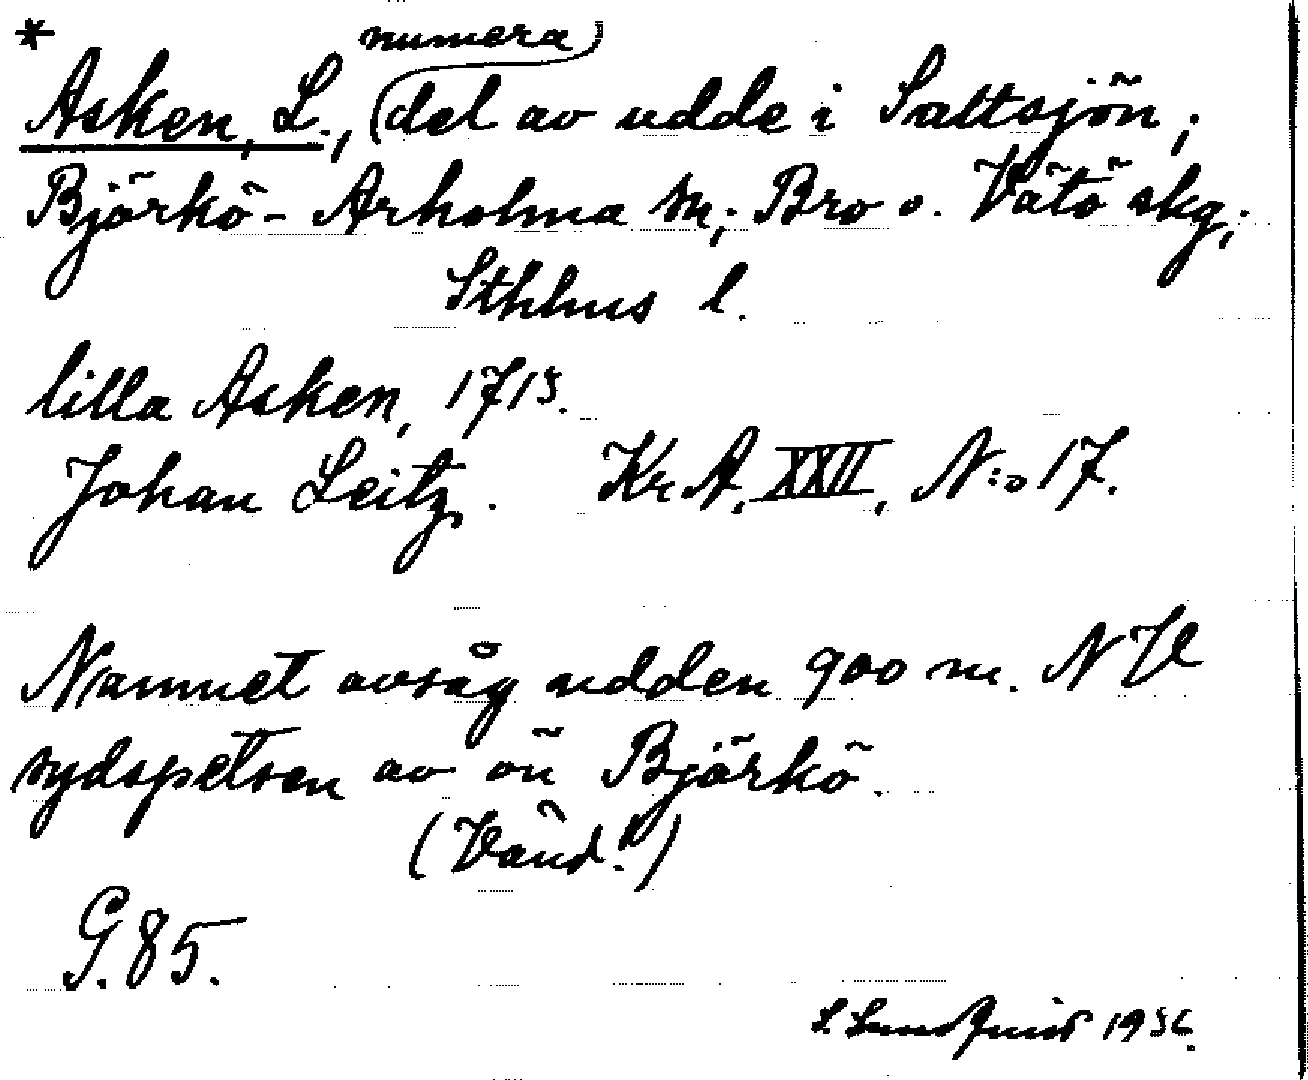 *
numera
Asken, L., (del av udde i Saltsjön;
Björkö-Arholma sn; Bro o. Vätö skg;
Sthlms l.
lilla Asken, 1715.
Johan Leitz. Kr.A. XXII, N:o 17.
Namnet avsåg udden 900 m. NV
sydspetsen av ön Björkö.
(Vänd!)
G.85.
S. Lundquist 1936.